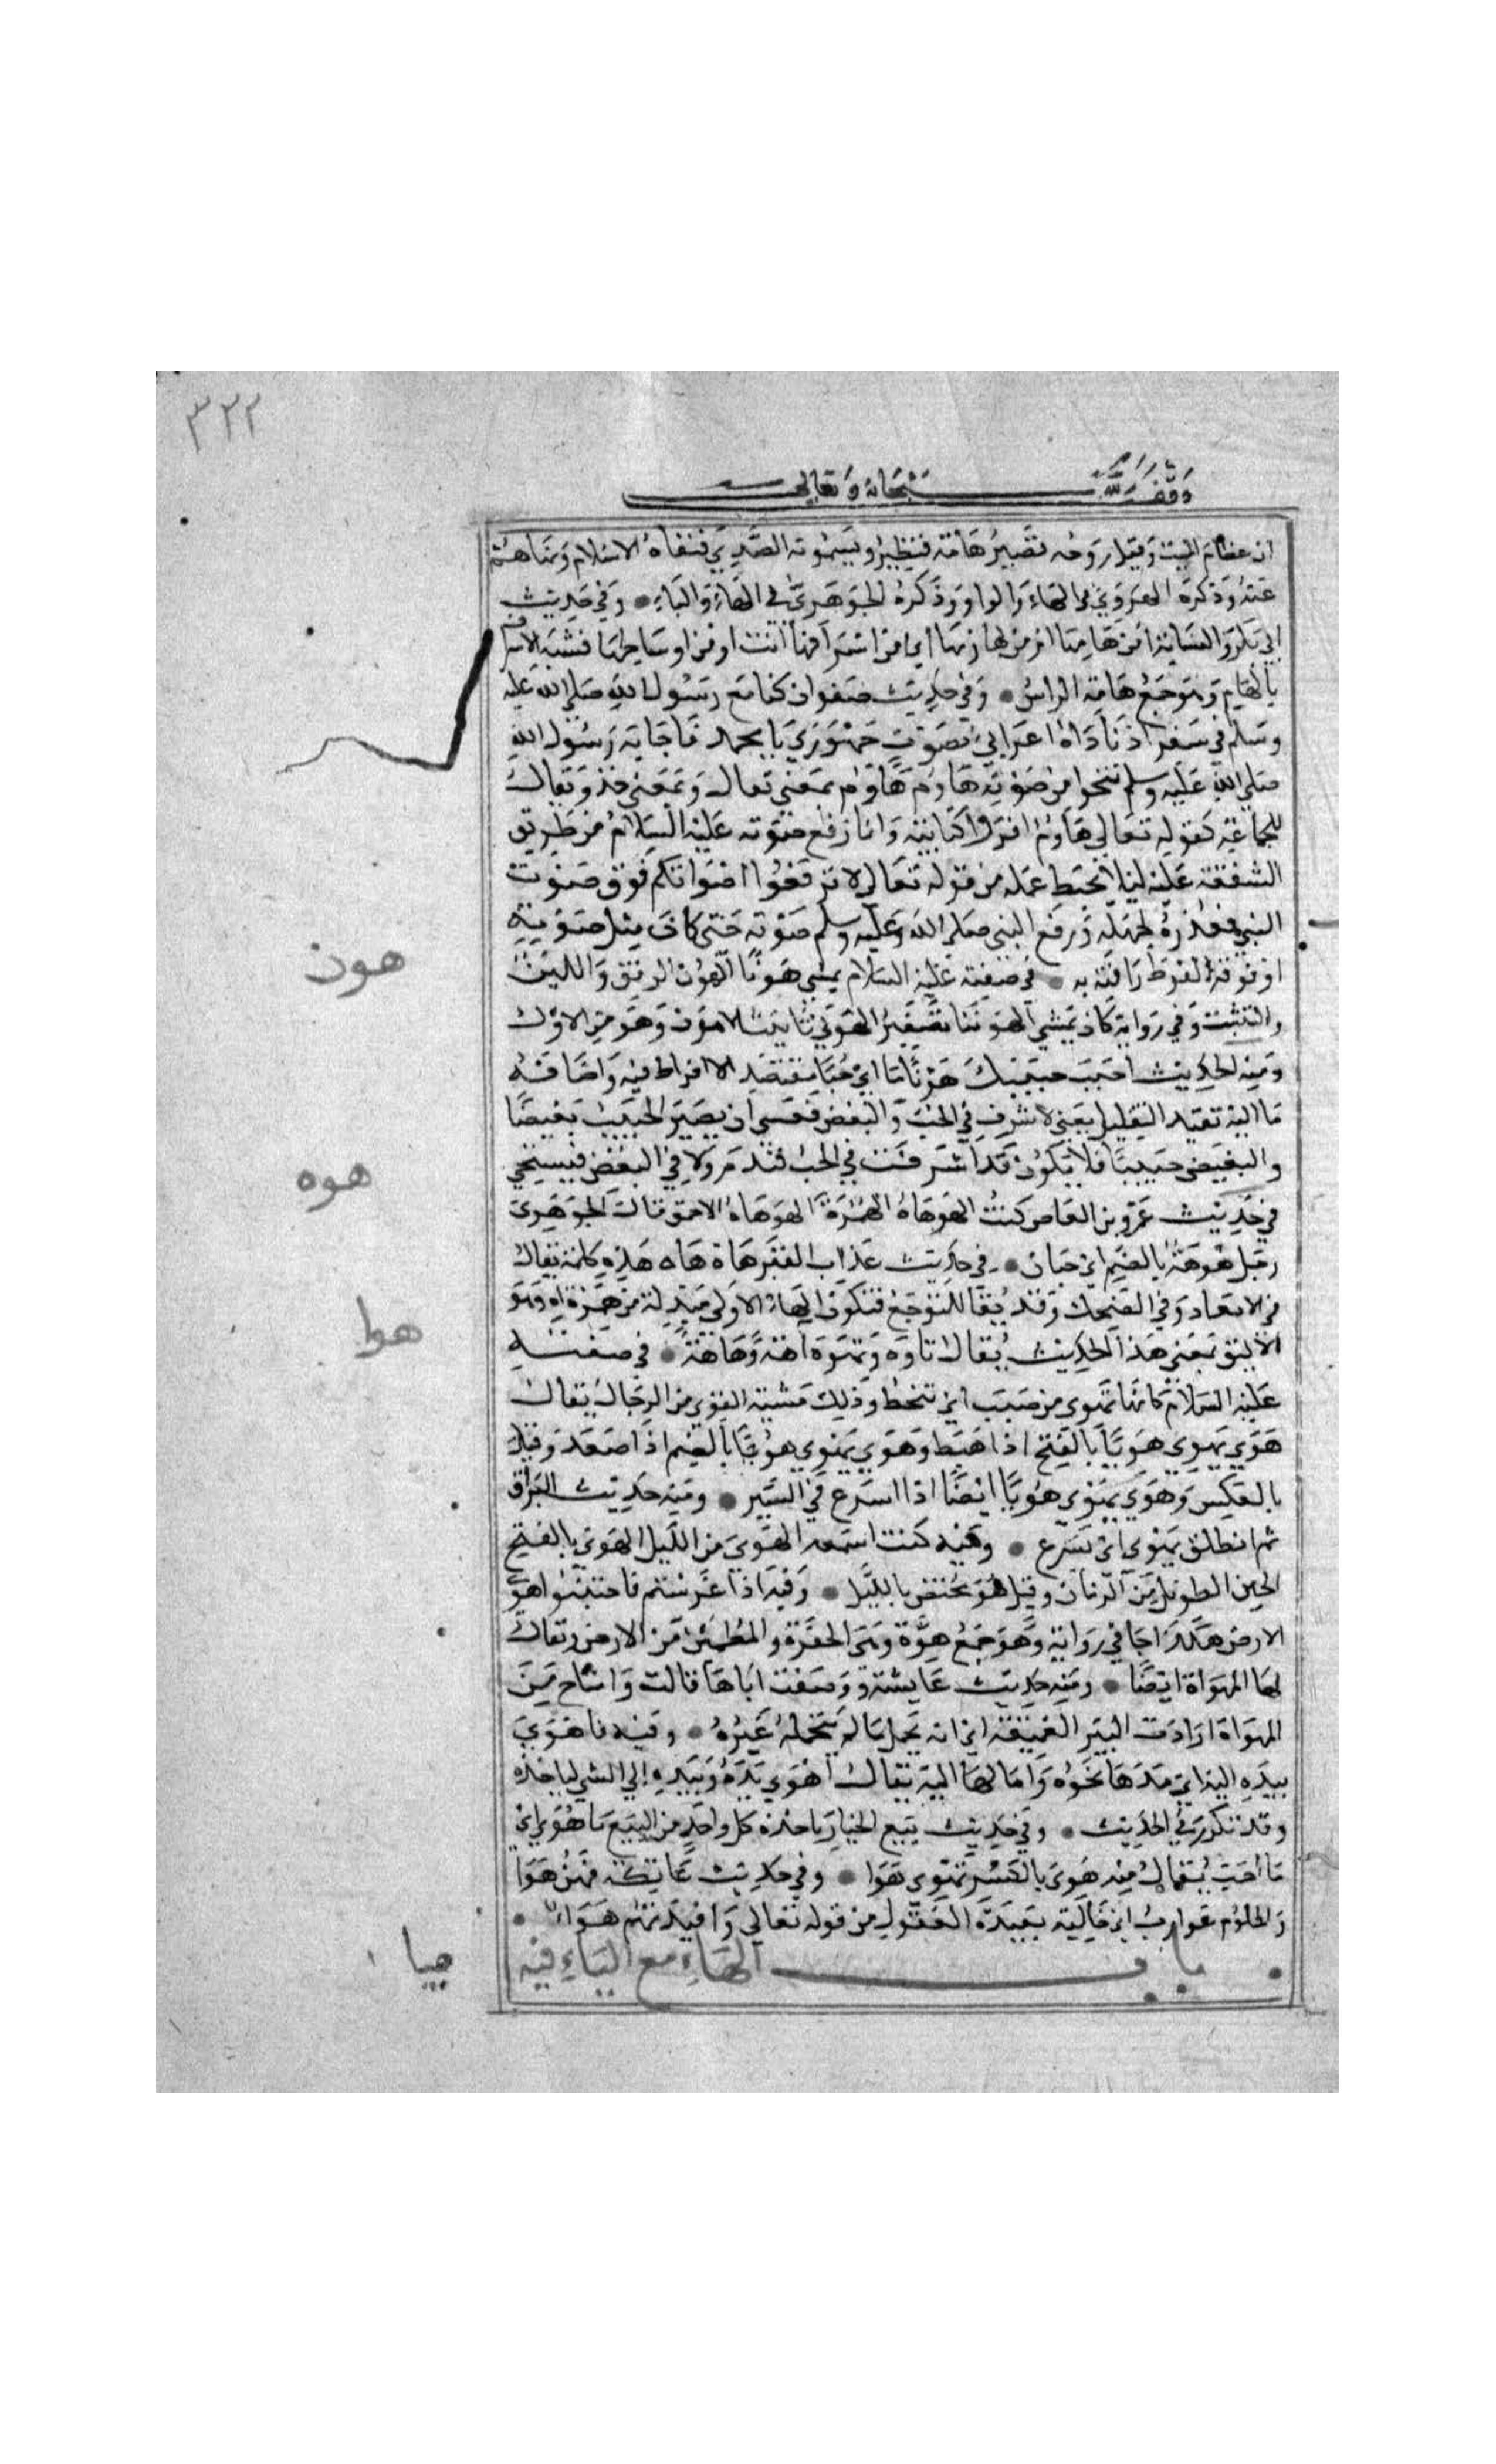 ٣٢٢
وقف لله سبحانه وتعالى
ان عظام الميت وقيل روحه تصير هامة فتطير ويسمونه الصدي فنفاه الاسلام ونهاهم
عنه وذكره الهروي في الهاء والواو وذكره الجوهري في الهاء والياء وفي حديث
ابي بكر والنسابة امن هامها ام من لهازمها اي من اشرافها انت او من اوساطها فشبه الاشراف
بالهام وهو جمع هامة الراس وفي حديث صفوان كنا مع رسول الله صلى الله عليه
وسلم في سفر اذ ناداه اعرابي بصوت جهوري يا محمد فاجابه رسول الله
صلى الله عليه وسلم نحوا من صوته هاوم هاوم بمعنى تعال وبمعنى خذ ويقال
للجماعة كقوله تعالى هاوم اقرؤا كتابيه وانما رفع صوته عليه السلام من طريق
الشفقة عليه ليلا يحبط عمله من قوله تعالى لا ترفعوا اصواتكم فوق صوت
النبي فعذره لجهله ورفع النبي صلى الله عليه وسلم صوته حتى كان مثل صوته
او فوقه لفرط رافته به في صفته عليه السلام يمشي هونا الهون الرفق واللين
والتثبت وفي رواية كان يمشي الهوينا تصغير الهوني تانيث الاهون وهو من الاول
ومنه الحديث احبب حبيبك هونا ما اي حبا مقتصدا لا افراط فيه واضافة
ما اليه تفيد التقليل يعني لا تسرف في الحب والبغض فعسى ان يصير الحبيب بغيضا
والبغيض حبيبا فلا تكون قد اسرفت في الحب فتندم ولا في البغض فتستحي
في حديث عمرو بن العاص كنت الهوهاة الهمزة الهوهاة الاحمق قال الجوهري
رجل هوهة بالضم اي جبان في حديث عذاب القبر هاه هاه هذه كلمة تقال
في الابعاد وفي الضحك وقد يقال للتوجع فتكون الهاء الاولى مبدلة من همزة اه وهو
الاليق بمعنى هذا الحديث يقال تاوه وتهوه اهة وهاهة في صفته
عليه السلام كانما يهوي من صبب اي ينحط وذلك مشية القوي من الرجال يقال
هوي يهوي هويا بالفتح اذا هبط وهوي يهوي هويا بالضم اذا صعد وقيل
بالعكس وهوي يهوي هويا ايضا اذا اسرع في السير ومنه حديث البراق
ثم انطلق يهوي اي يسرع وفيه كنت اسمعه الهوي من الليل الهوي بالفتح
الحين الطويل من الزمان وقيل هو مختص بالليل وفيه اذا عرستم فاجتنبوا هوي
الارض هكذا جا في رواية وهو جمع هوة وهي الحفرة والمطمئن من الارض ويقال
لها المهواة ايضا ومنه حديث عايشة ووصفت اباها قالت وامتاح من
المهواة ارادت البير العميقة اي انه تحمل ما لم يتحمله غيره وفيه فاهوي
بيده اليه اي مدها نحوه وامالها اليه يقال اهوي يده وبيده الي الشي لياخذه
وقد تكرر في الحديث وفي حديث بيع الخيار ياخذ كل واحد من البيع ما هوي اي
ما احب يقال منه هوي بالكسر يهوي هوا وفي حديث عاتكة فهن هوا
والحلوم عوازب اي خالية بعيدة العقول من قوله تعالى وافيدتهم هواء
باب الهاء مع الياء فيه
هون
هوه
هوا
هيا